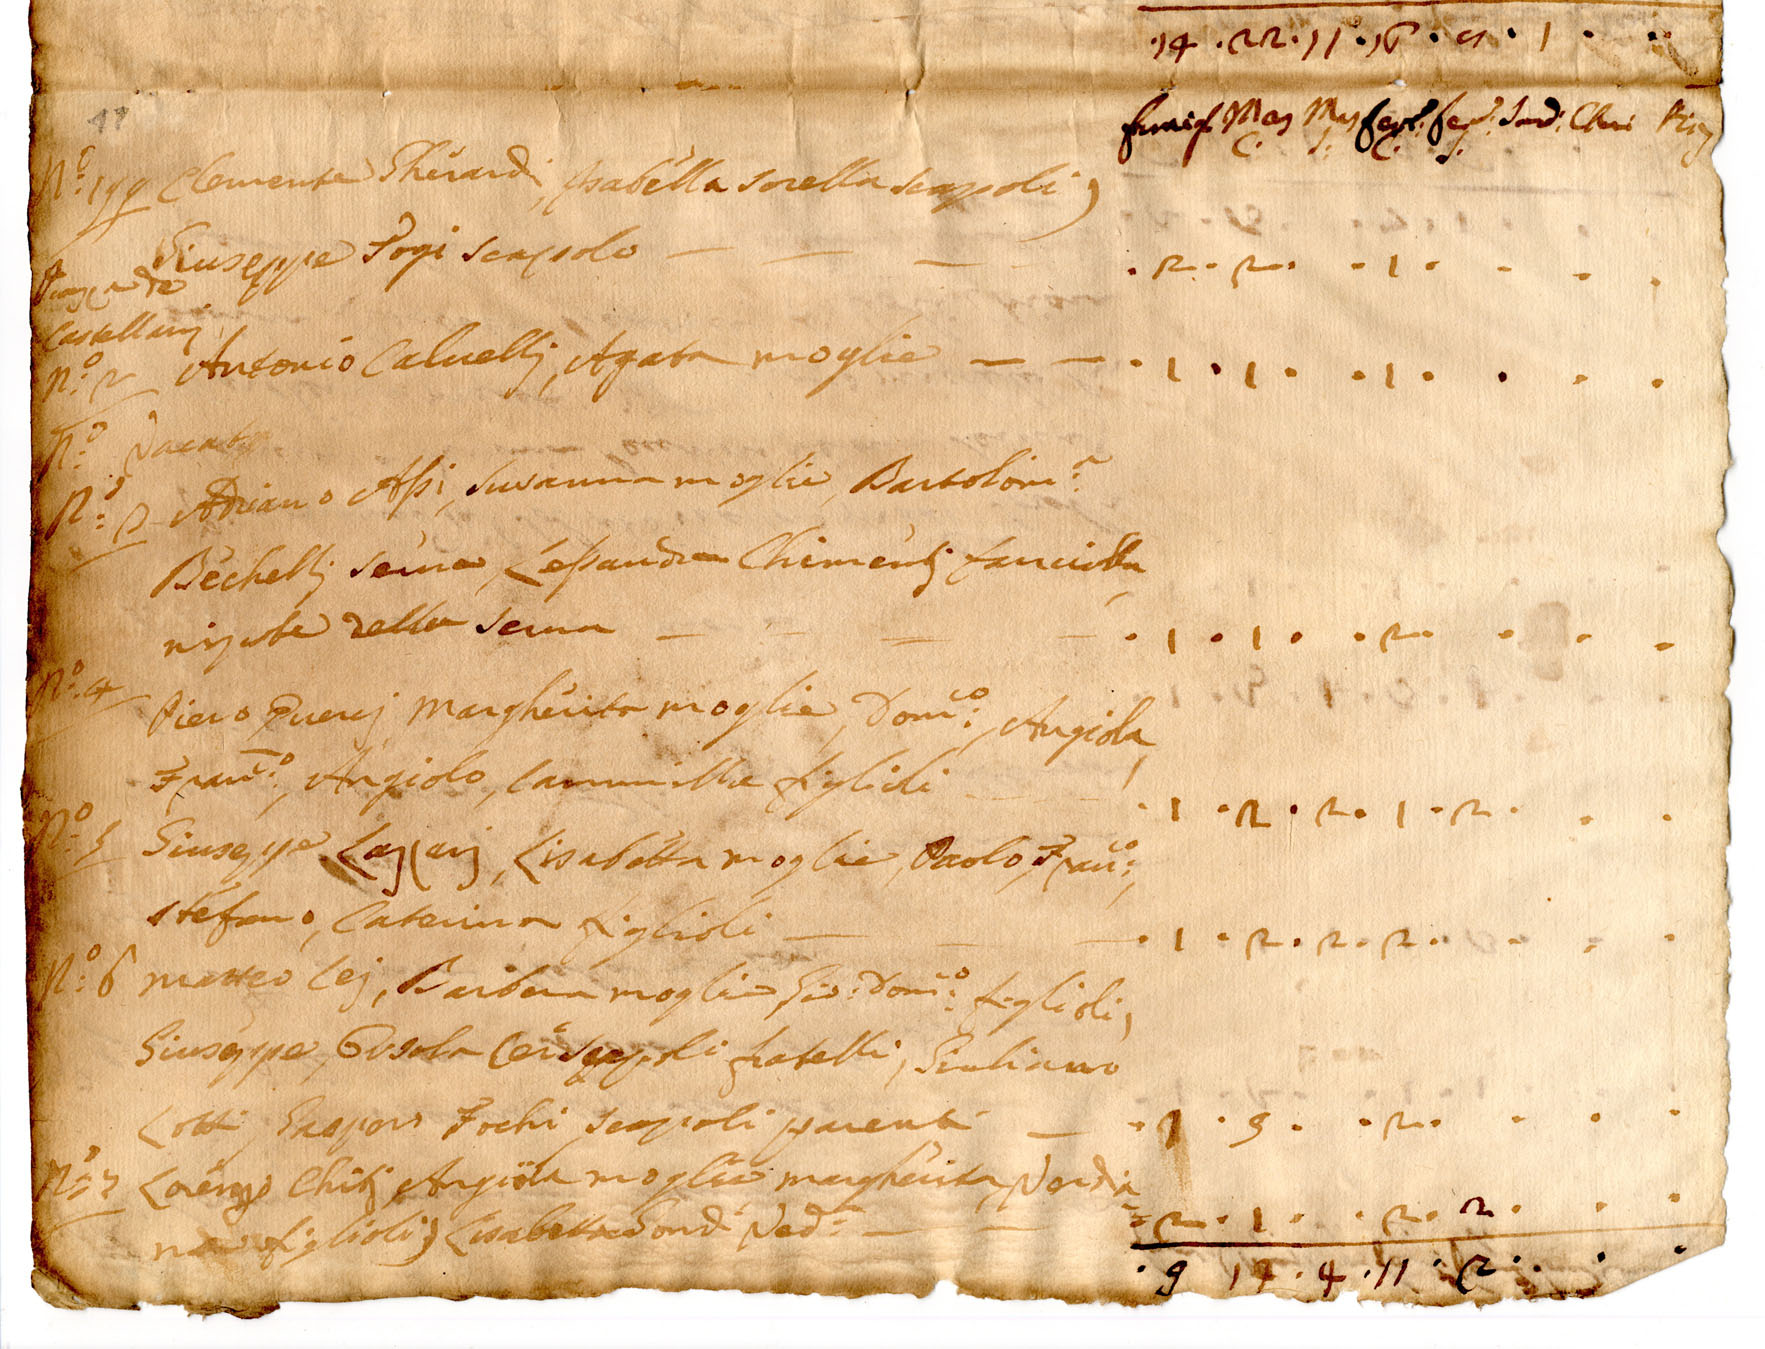 .14 . 22 . 11 . 16 . 5 . 1 . .
47
famig. Mas Mas fem: fem: Sord: Chie
C. S: C. S:
N.o 199 Clemente Gherardi, Isabella sorella scapoli,
Giuseppe Fogi scapolo — — — — . 2 . 2 . . 1 . . . .
Castellani
N.o 2 Antonio Calvelli, Agata moglie — — . 1 . 1 . . 1 . . . .
N.o Vacata
N.o 3 Adriano Assi, Susanna moglie, Bartolom.a
Bechelli serva, Lessandra Chimenti fanciulla,
nipote della serva — — — — . 1 . 1 . . 2 . . . .
N.o 4
Piero Querci, Margherita moglie, Dom.co, Angiola,
Fran.co, Angiolo, Cammilla figlioli — — . 1 . 2 . 2 . 1 . 2 . . .
N.o 5 Giuseppe Lazzari, Lisabetta moglie, Paolo, Fran.co,
Stefano, Caterina figlioli — — — . 1 . 2 . 2 . 2 . . . .
N.o 6 Matteo Cei, Barbera moglie Gio: Dom.co figlioli,
Giuseppe, Orsola Cei scapoli fratelli, Giuliano
Lotti, Gaspero Fochi scapoli parenti — . 1 . 5 . . 2 . . . .
N.o 7 Lorenzo Chiti, Angiola moglie margherita, Verdia
na figlioli, Lisabetta Ved.a — — 2 . 1 . . 2 2 . . .
. 9 17 . 4 . 11 . 2 . . . .